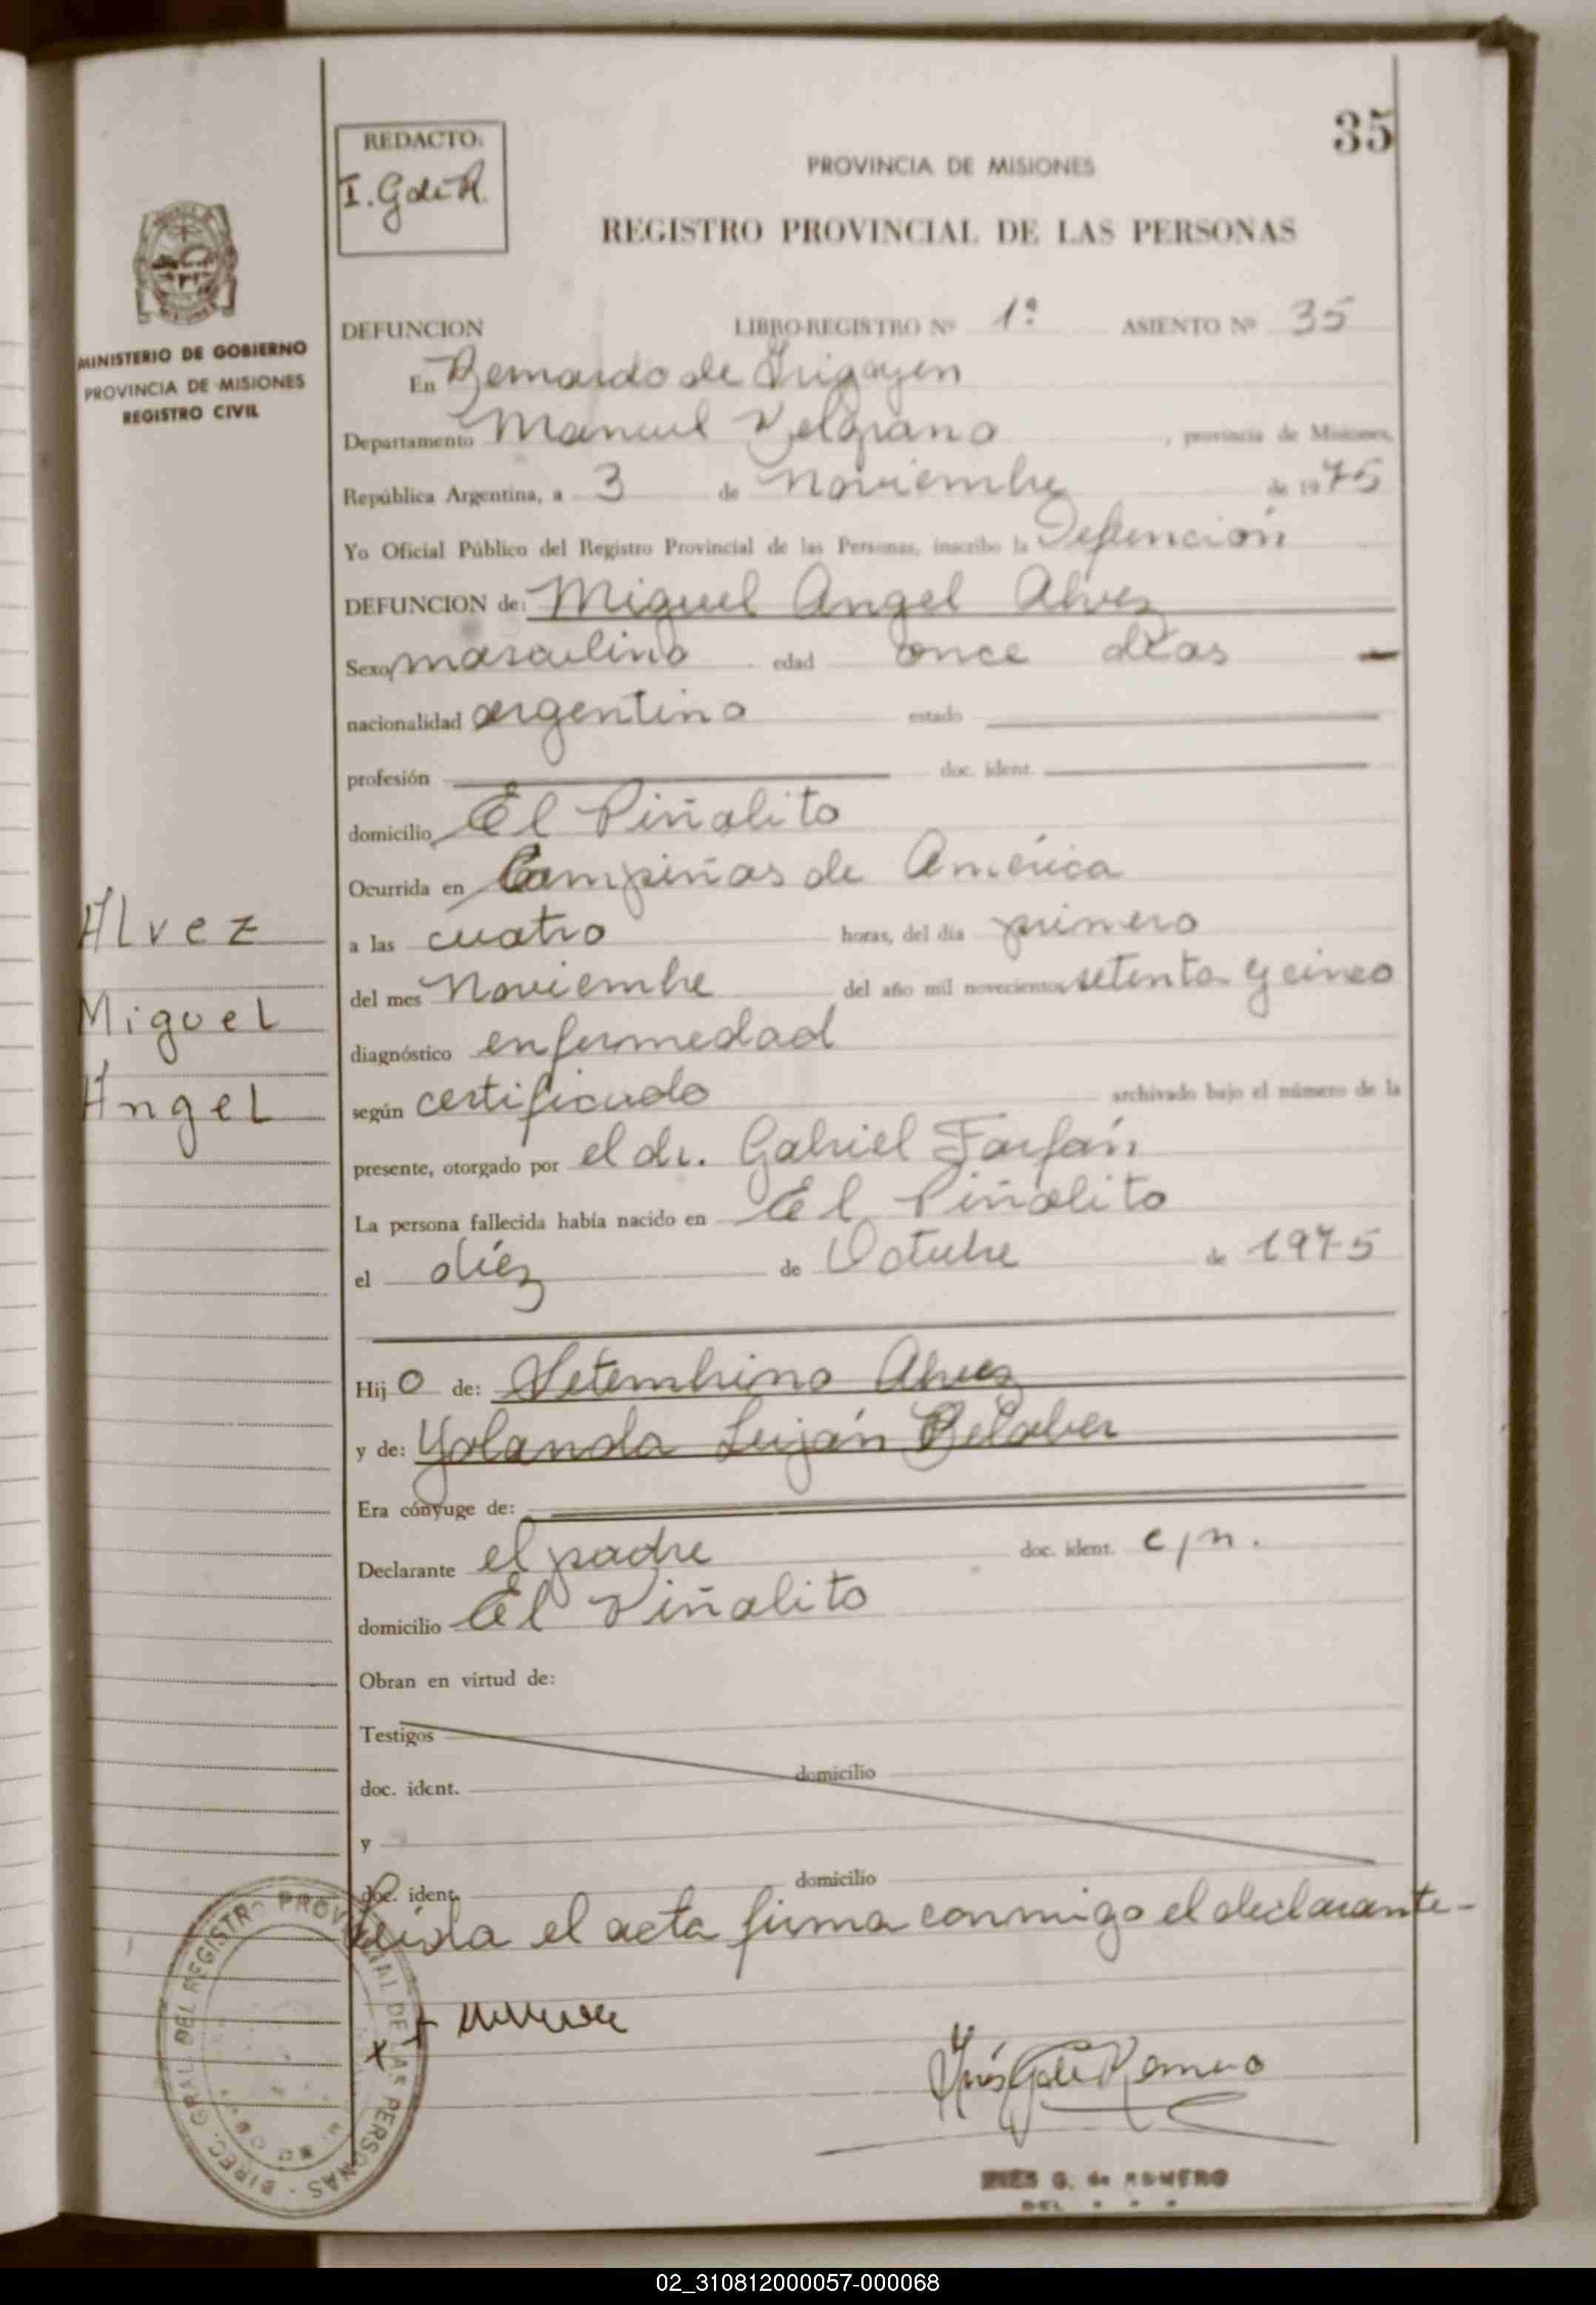 35
REDACTO:
I. G de R.
PROVINCIA DE MISIONES
REGISTRO PROVINCIAL DE LAS PERSONAS
MINISTERIO DE GOBIERNO
PROVINCIA DE MISIONES
REGISTRO CIVIL
DEFUNCION LIBRO-REGISTRO Nº 1º ASIENTO Nº 35
En Bernardo de Irigoyen
Departamento Manuel Belgrano, provincia de Misiones,
República Argentina, a 3 de Noviembre de 1975
Yo Oficial Público del Registro Provincial de las Personas, inscribo la Defunción
DEFUNCION de: Miguel Angel Alvez
Sexo masculino edad once días
nacionalidad argentino estado
profesión doc. ident.
domicilio El Piñalito
Ocurrida en Campiñas de América
a las cuatro horas, del día primero
del mes Noviembre del año mil novecientos setenta y cinco
diagnóstico enfermedad
según certificado archivado bajo el número de la
presente, otorgado por el dr. Gabriel Farfán
La persona fallecida había nacido en El Piñalito
el diéz de Octubre de 1975
Alvez
Miguel
Angel
Hijo de: Setembrino Alvez
y de: Yolanda Luján
Era cónyuge de:
Declarante el padre doc. ident. c/n.
domicilio El Piñalito
Obran en virtud de:
Testigos
doc. ident. domicilio
y
doc. ident. domicilio
Leída el acta firma conmigo el declarante-
DIREC. GRAL. DEL REGISTRO PROVINCIAL DE LAS PERSONAS
Inés G de Romero
INES G. de ROMERO
02_310812000057-000068